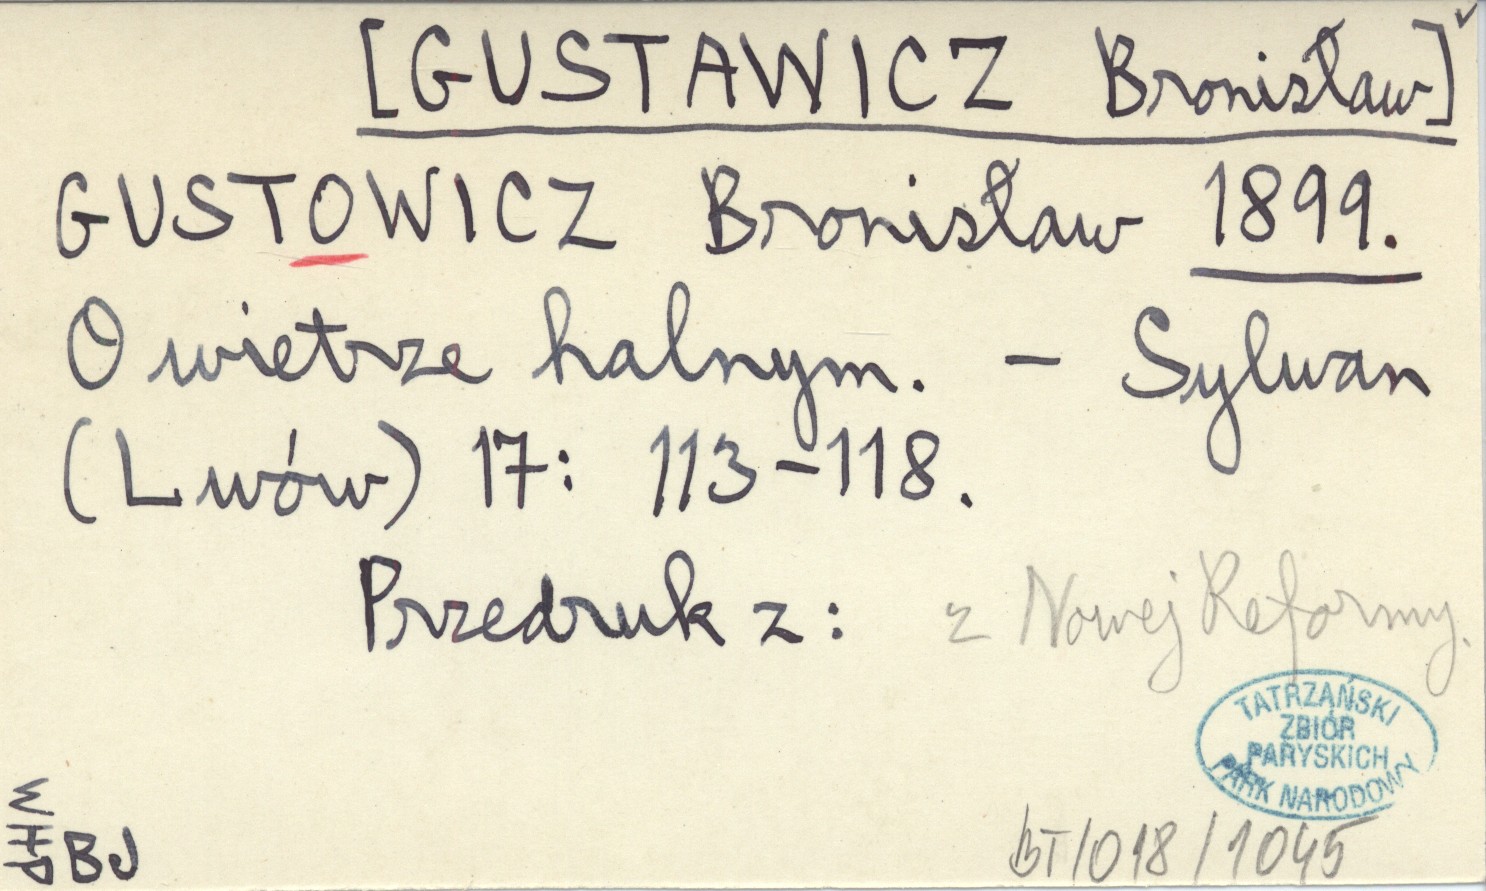 [GUSTAWICZ Bronisław]
GUSTOWICZ Bronisław 1899.
O wietrze halnym. – Sylwan
(Lwów) 17: 113–118.
Przedruk z: z Nowej Reformy.
TATRZAŃSKI
ZBIÓR
PARYSKICH
PARK NARODOWY
WHP
BJ
BT/018/1045